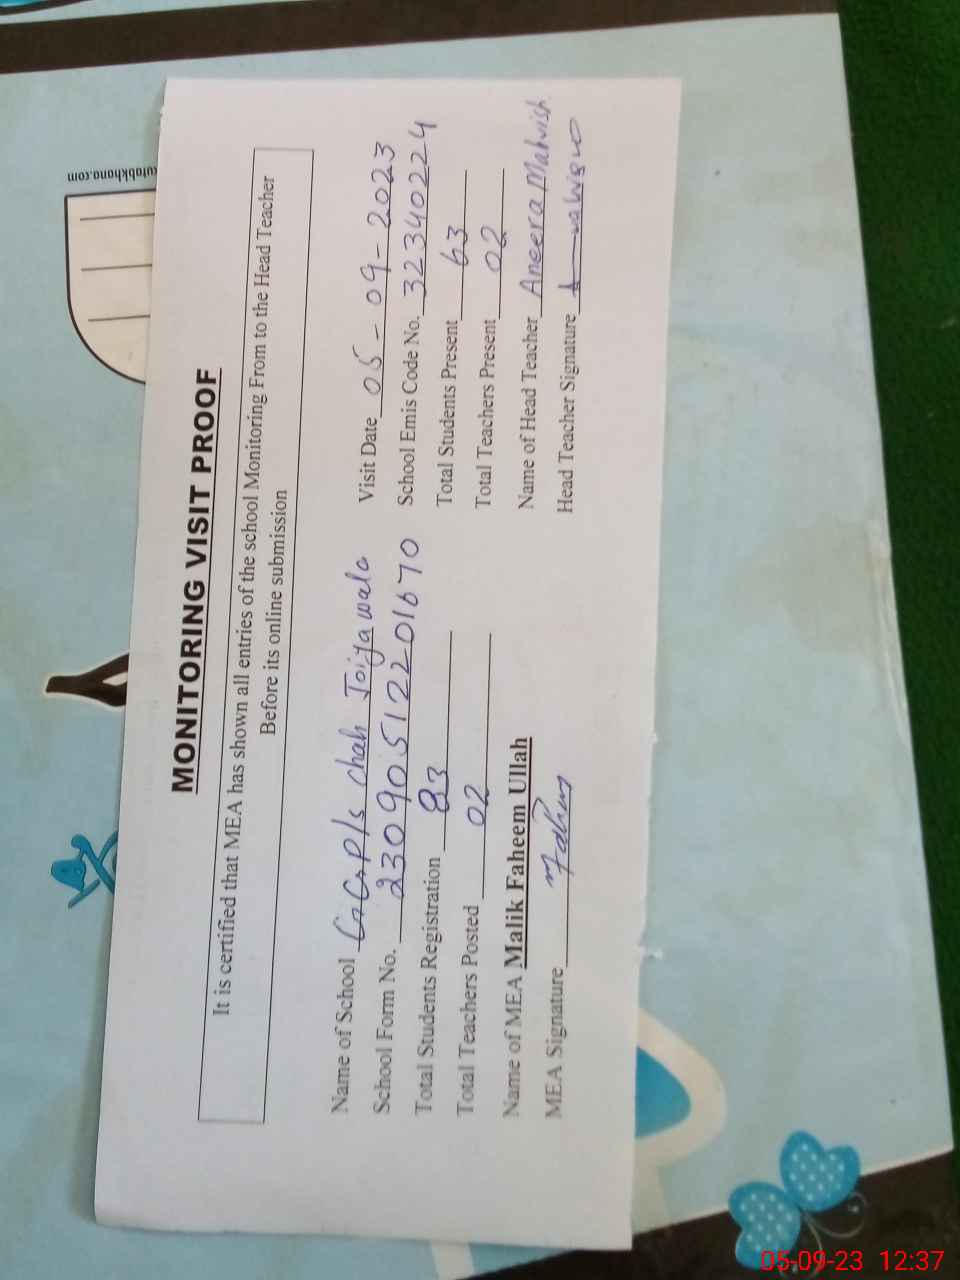 MONITORING VISIT PROOF
It is certified that MEA has shown all entries of the school Monitoring From to the Head Teacher
Before its online submission
Name of School G.G.P/s chah Joiyawala Visit Date 05-09-2023
School Form No. 23090512201670 School Emis Code No. 32340224
Total Students Registration 83 Total Students Present 63
Total Teachers Posted 02 Total Teachers Present 02
Name of MEA Malik Faheem Ullah Name of Head Teacher Aneera Mahwish
MEA Signature Head Teacher Signature
kutabkhana.com
05-09-23 12:37